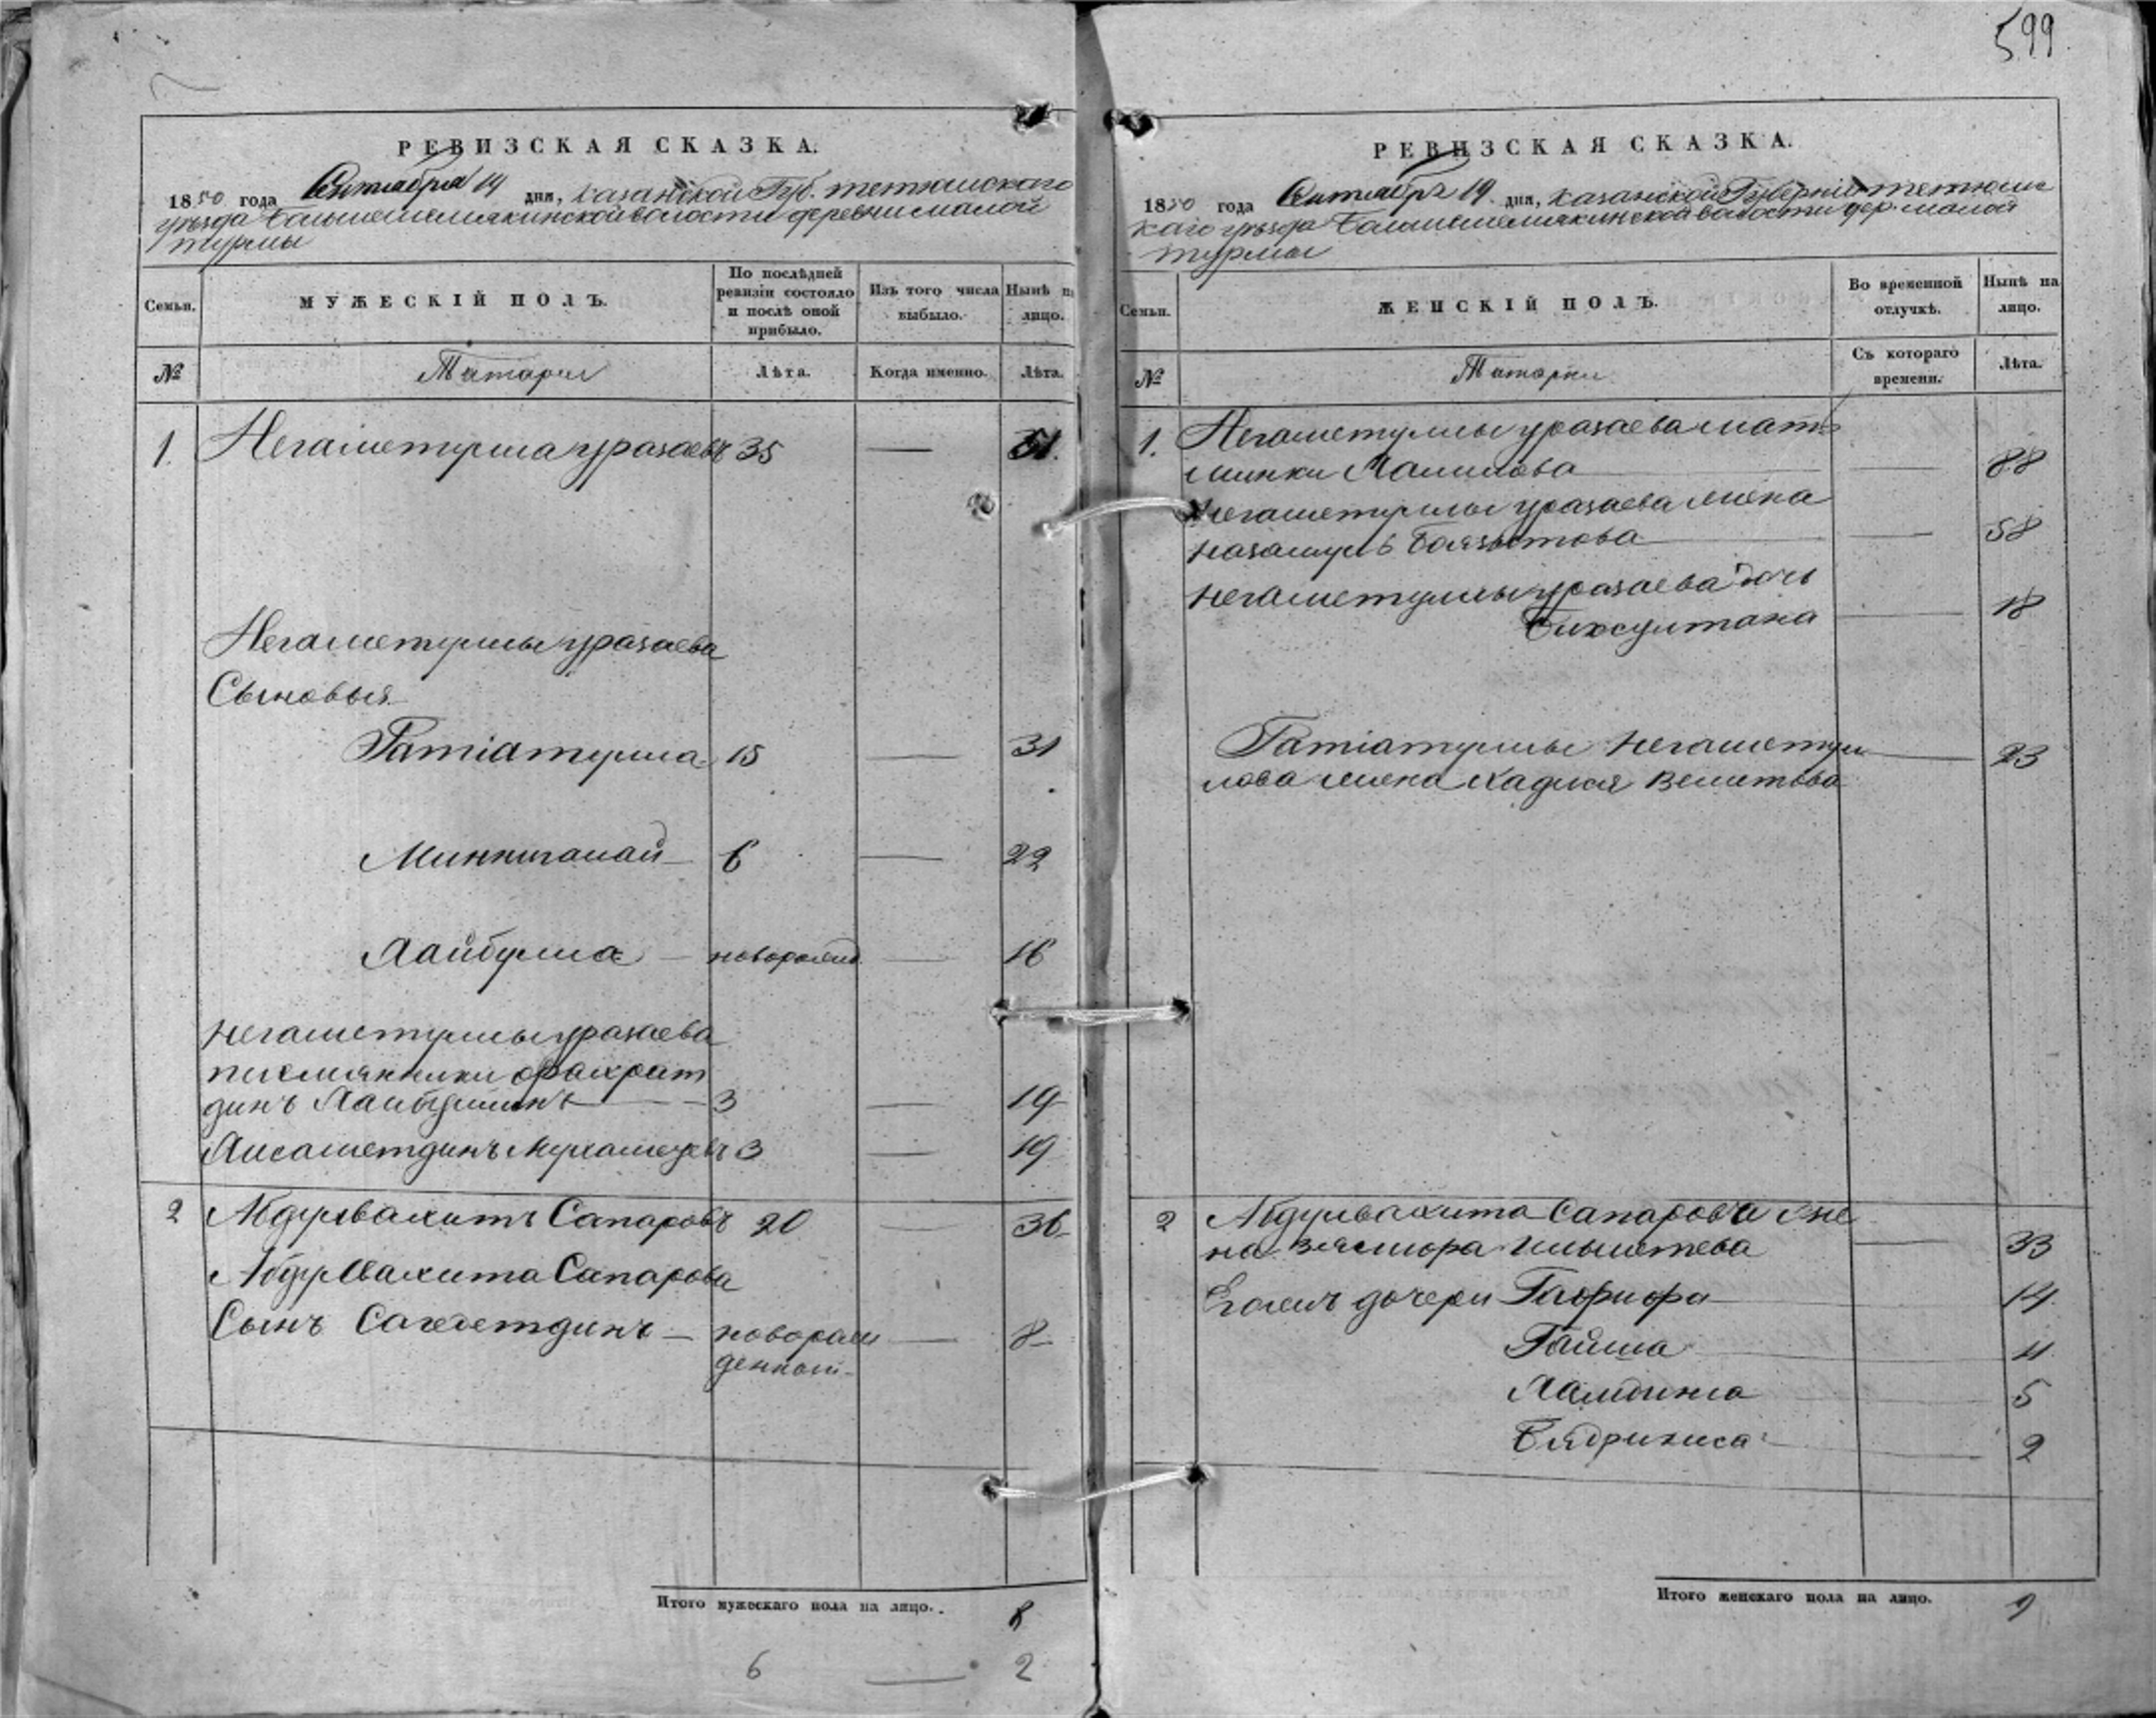 599
РЕВИЗСКАЯ СКАЗКА.
1850 года Сентября 19 дня, Казанской Губ. тетюшскаго
уѣзда большешемякинской волости деревни малой
турмы
Семьи. МУЖЕСКІЙ ПОЛЪ. По послѣдней ревизіи состояло и послѣ оной прибыло. Изъ того числа выбыло. Нынѣ на лицо.
№ Татары Лѣта. Когда именно. Лѣта.
1. Негаметулла уразаевъ 35 — 51.
Негаметуллы уразаева
Сыновья
Гатіатулла 15 — 31
Миннигалай 6 — 22
Хайбулла — новорожд — 16
Негаметуллы уразаева
племянники Фахрат
динъ Хайбуллинъ — 3 — 19
Хисаметдинъ 3 — 19
2 Абдулвахитъ Сапаровъ 20 — 36
Абдулвахита Сапарова
Сынъ — новорож — 8
денной
Итого мужескаго пола на лицо. 8
6 — 2
РЕВИЗСКАЯ СКАЗКА.
1850 года Сентября 19 дня, Казанской Губерніи тетюшс
каго уѣзда большешемякинской волости дер. малой
турмы
Семьи. ЖЕНСКІЙ ПОЛЪ. Во временной отлучкѣ. Нынѣ на лицо.
№ Татарки Съ котораго времени. Лѣта.
1. Негаметуллы уразаева мать
88
Негаметуллы уразаева жена
— 58
Негаметуллы уразаева дочь
Биксултана — 18
Гатіатуллы Негаметул — 23
лова жена Хадися
2 Абдулвахита Сапарова же
на — 33
Его же дочери 14
Гайша 11
5
Бядриниса 2
Итого женскаго пола на лицо. 9